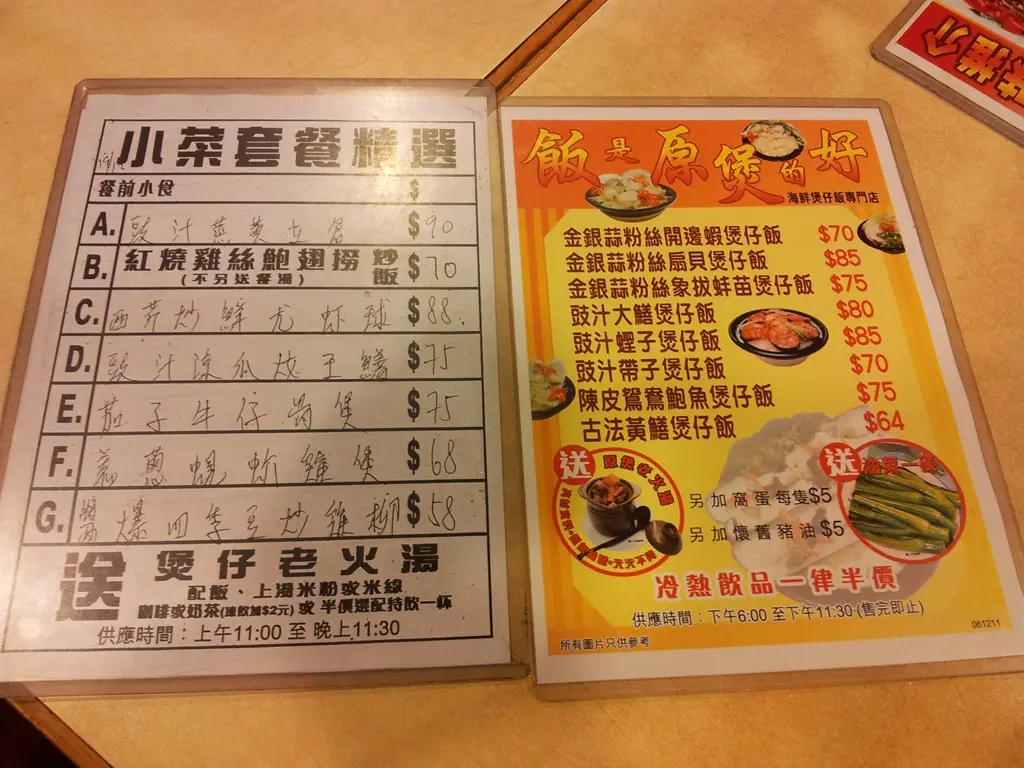 小菜套餐精選
餐前小食 $
A. 豉汁蒸黃立倉 $90
B. 紅燒雞絲鮑翅撈炒飯 $70
(不另送餐湯)
C. 西芹炒鮮尤虾球 $88
D. 豉汁涼瓜炆王鱔 $75
E. 茄子牛仔骨煲 $75
F. 蔥蜆蚧雞煲 $68
G. 醬爆四季豆炒雞柳 $58
送 煲仔老火湯
配飯、上湯米粉或米線
咖啡或奶茶(凍飲加$2元) 或 半價選配特飲一杯
供應時間：上午11:00 至 晚上11:30
飯是原煲的好
海鮮煲仔飯專門店
金銀蒜粉絲開邊蝦煲仔飯 $70
金銀蒜粉絲扇貝煲仔飯 $85
金銀蒜粉絲象拔蚌苗煲仔飯 $75
豉汁大鱔煲仔飯 $80
豉汁蟶子煲仔飯 $85
豉汁帶子煲仔飯 $70
陳皮鴛鴦鮑魚煲仔飯 $75
古法黃鱔煲仔飯 $64
送 原煲老火湯
送 油菜一碟
另加窩蛋每隻$5
另加懷舊豬油$5
冷熱飲品一律半價
供應時間：下午6:00 至下午11:30 (售完即止)
所有圖片只供參考
061211
推介